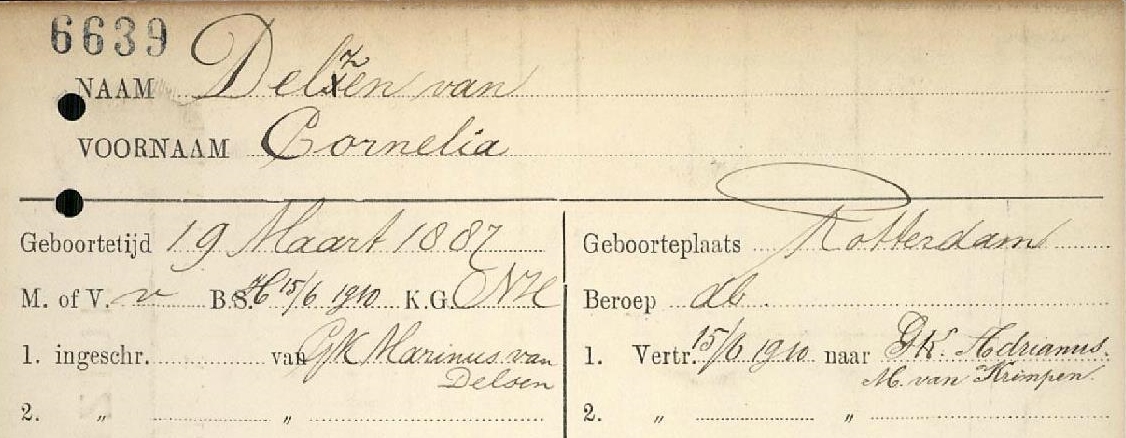 6639
NAAM Delzen van
VOORNAAM Cornelia
Geboortetijd 19 Maart 1887 Geboorteplaats Rotterdam
M. of V. v B.S. H 15/6 1910 K.G. NH Beroep db
1. ingeschr. van GK Marinus van Delsen 1. Vertr. 15/6 1910 naar GK. Adrianus M. van Krimpen.
2. „ „ 2. „ „